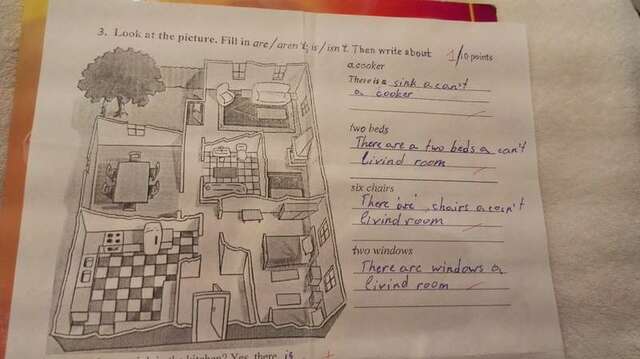 3. Look at the picture. Fill in are/aren't; is/isn't. Then write about
1/10 points
a cooker
There is a sink a can't
a cooker
two beds
There are a two beds a can't
livind room
six chairs
There are, chairs a
livind room
two windows
There are windows a
livind room
in the kitchen? Yes, there is